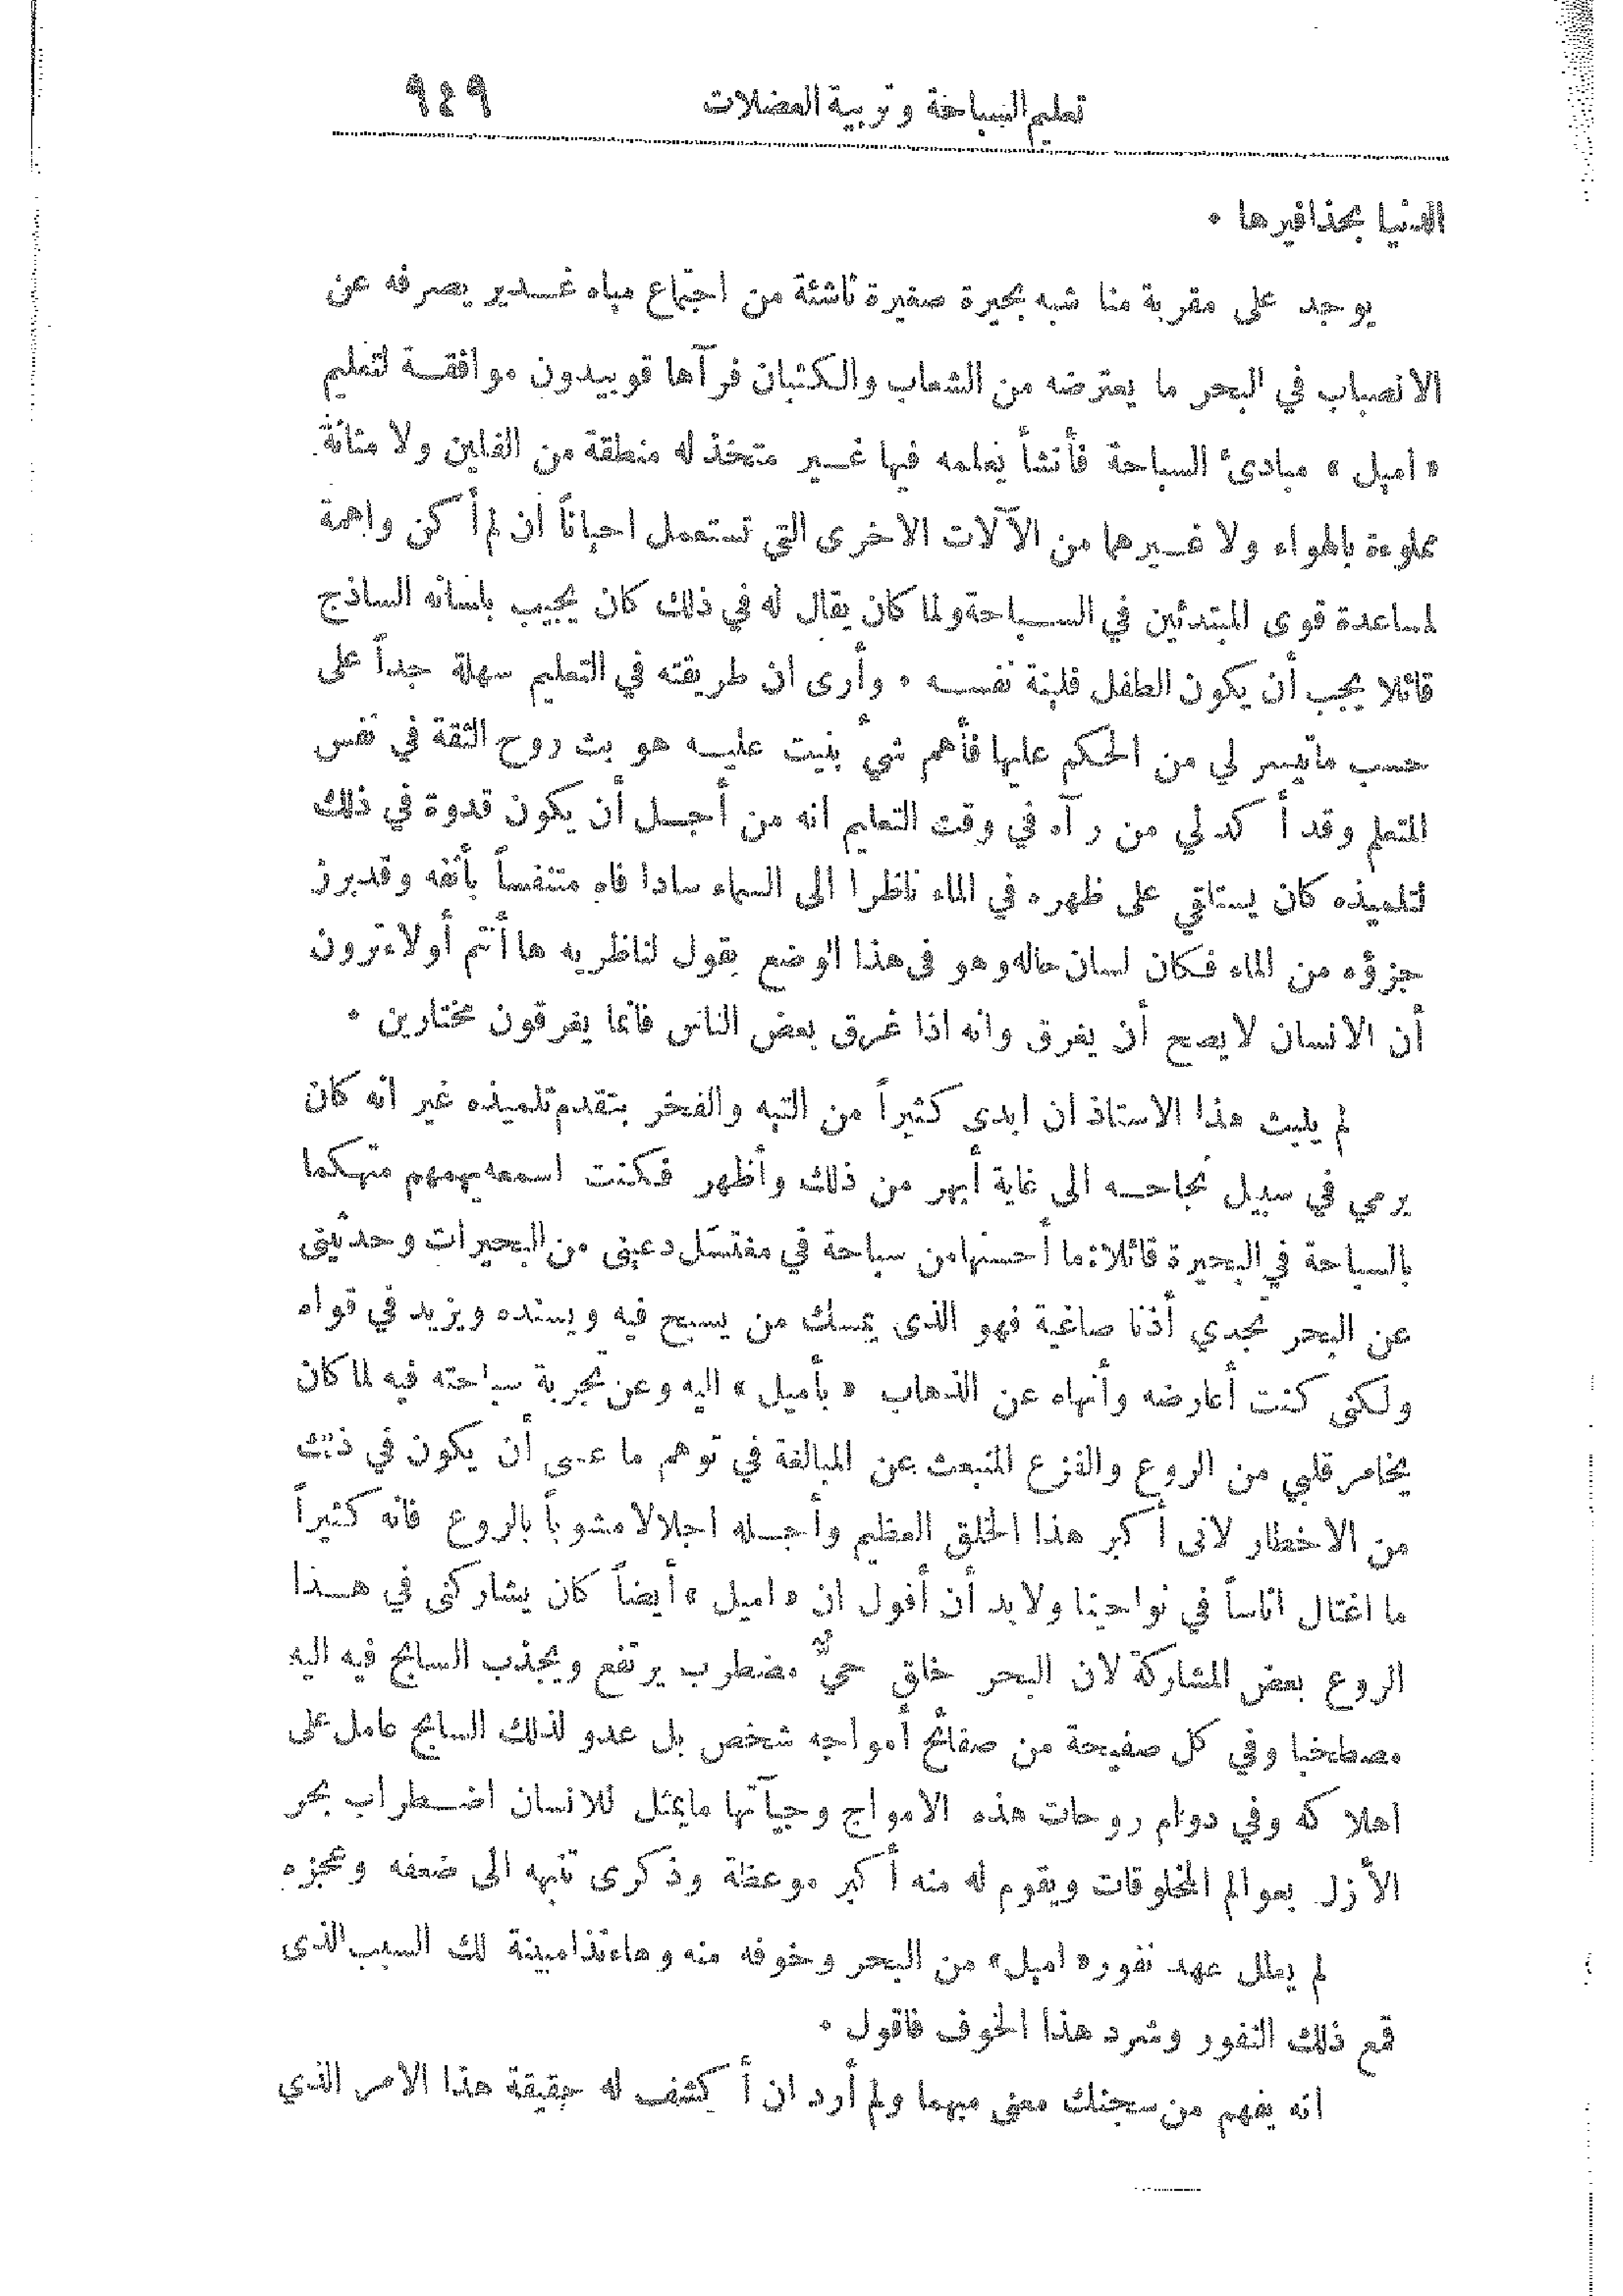 تعليم السباحة وتربية العضلات ٩٤٩
الدنيا بحذافيرها ٠
يوجد على مقربة منا شبه بحيرة صغيرة ناشئة من اجتماع مياه غدير يصرفه عن
الانصباب في البحر ما يعترضه من الشعاب والكثبان فرآها قوبيدون موافقة لتعليم
« اميل » مبادئ السباحة فأنشأ يعلمه فيها غير متخذ له منطقة من الفلين ولا مثانة
مملوءة بالهواء ولا غيرهما من الآلات الاخرى التي تستعمل احياناً ان لم أكن واهمة
لمساعدة قوى المبتدئين في السباحة ولما كان يقال له في ذلك كان يجيب بلسانه الساذج
قائلا يجب أن يكون الطفل فلينة نفسه ٠ وأرى ان طريقته في التعليم سهلة جداً على
حسب ما تيسر لي من الحكم عليها فأهم شيء بنيت عليه هو بث روح الثقة في نفس
المتعلم وقد أكد لي من رآه في وقت التعليم انه من أجل أن يكون قدوة في ذلك
لتلميذه كان يستلقي على ظهره في الماء ناظرا الى السماء سادا فاه متنفساً بأنفه وقد برز
جزؤه من الماء فكان لسان حاله وهو فى هذا الوضع يقول لناظريه ها أنتم أولاء ترون
أن الانسان لا يصح أن يغرق وانه اذا غرق بعض الناس فانما يغرقون مختارين ٠
لم يلبث هذا الاستاذ ان ابدى كثيراً من التيه والفخر بتقدم تلميذه غير انه كان
يرمي في سبيل نجاحه الى غاية أبهر من ذلك وأظهر فكنت اسمعه يهمهم متهكما
بالسباحة في البحيرة قائلا: ما أحسنها من سباحة في مغتسل دعينى من البحيرات وحدثينى
عن البحر تجدي أذنا صاغية فهو الذى يمسك من يسبح فيه ويسنده ويزيد في قواه
ولكنى كنت أعارضه وأنهاه عن الذهاب « بأميل » اليه وعن تجربة سباحته فيه لما كان
يخامر قلبي من الروع والفزع المنبعث عن المبالغة في توهم ما عسى أن يكون في ذلك
من الاخطار لانى أكبر هذا الخلق العظيم وأجله اجلالا مشوباً بالروع فانه كثيراً
ما اغتال اناساً في نواحينا ولا بد أن أقول ان « اميل » أيضاً كان يشاركنى في هذا
الروع بعض المشاركة لان البحر خلق حيٌّ مضطرب يرتفع ويجذب السابح فيه اليه
مصطخبا وفي كل صفيحة من صفائح أمواجه شخص بل عدو لذلك السابح عامل على
اهلاكه وفي دوام روحات هذه الامواج وجيآتها ما يمثل للانسان اضطراب بحر
الأزل بعوالم المخلوقات ويقوم له منه أكبر موعظة وذكرى تنبهه الى ضعفه وعجزه
لم يطل عهد نفور « اميل » من البحر وخوفه منه وهاءنذا مبينة لك السبب الذى
قمع ذلك النفور وشرد هذا الخوف فاقول ٠
انه يفهم من سجنك معنى مبهما ولم أرد ان أكشف له حقيقة هذا الامر الذي